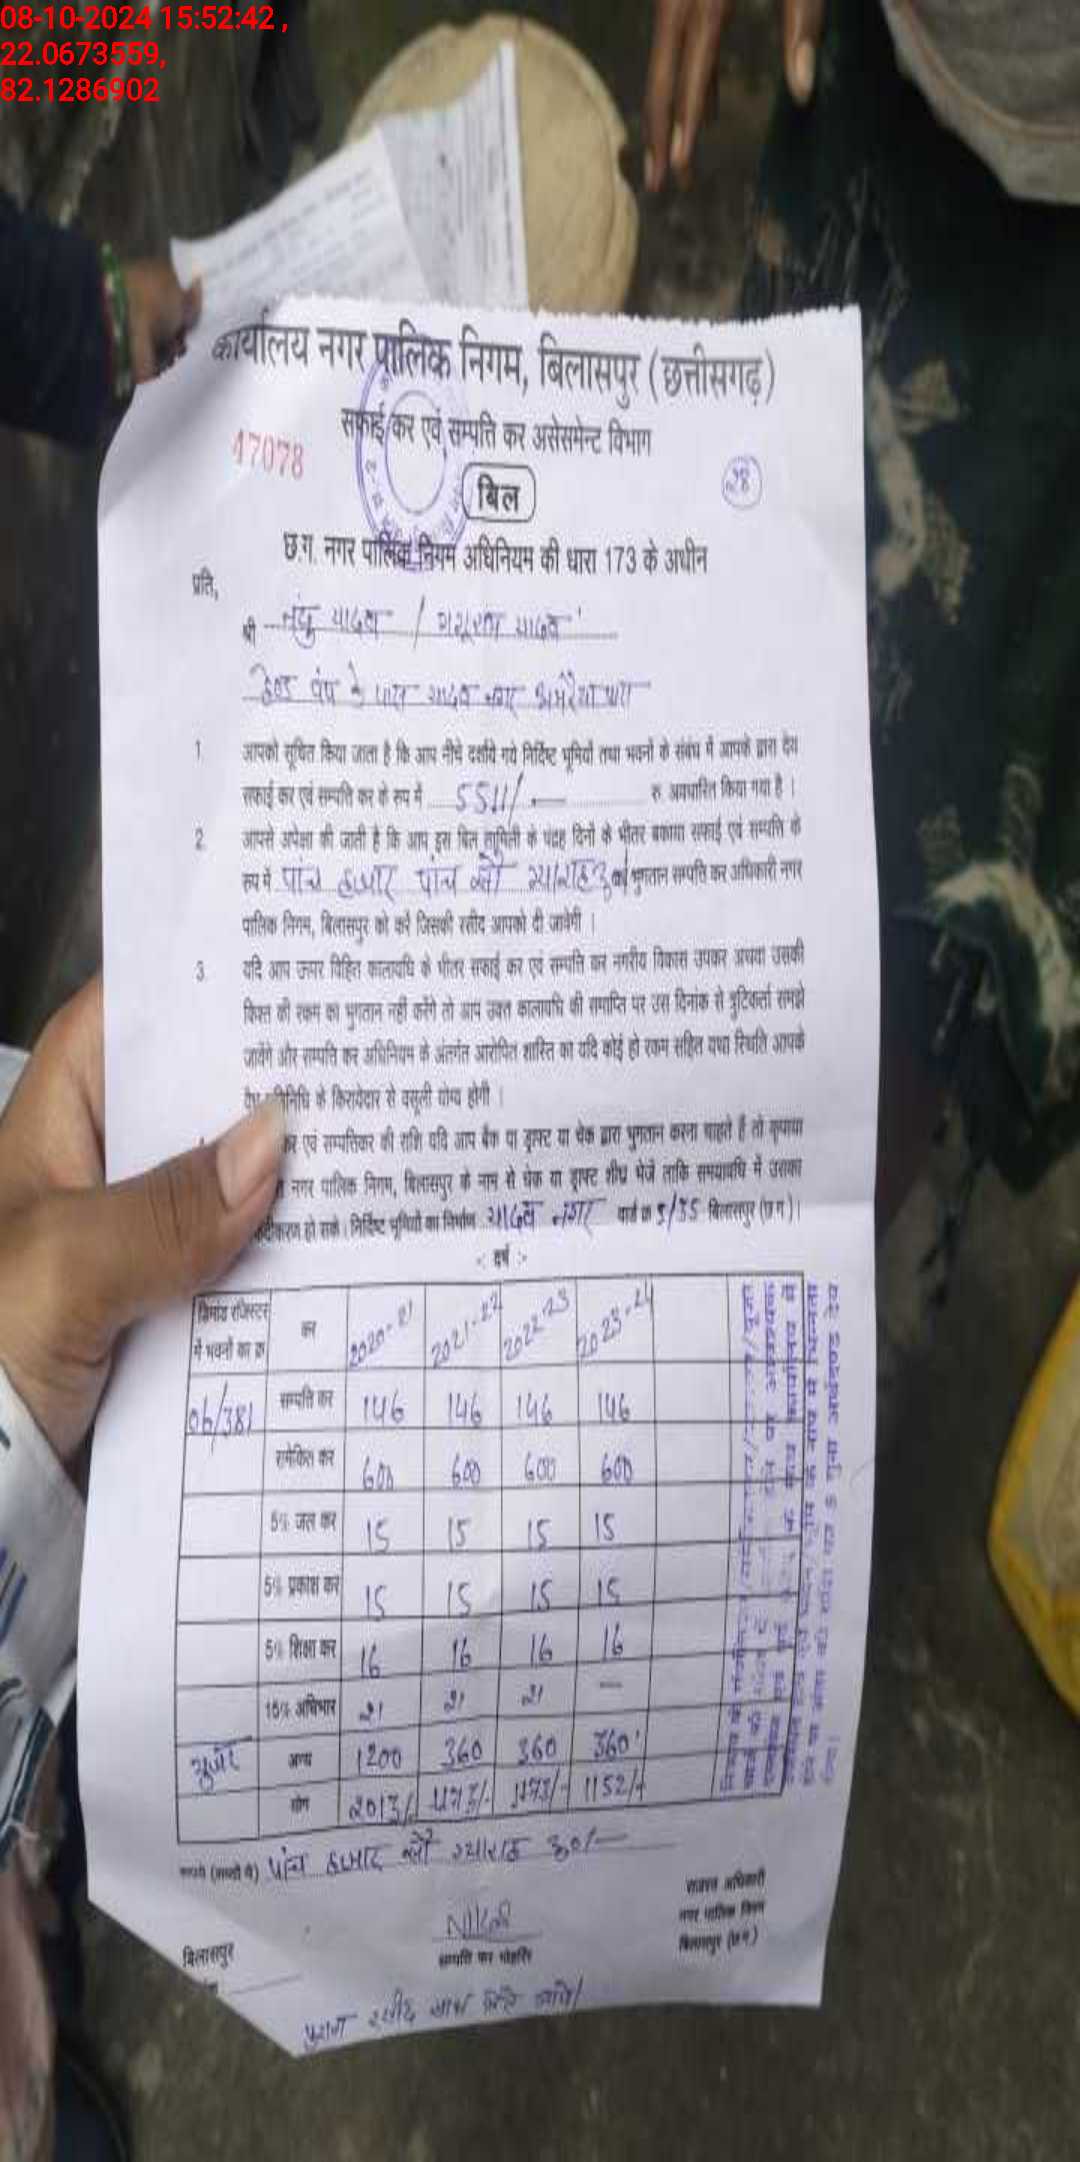 08-10-2024 15:52:42 ,
22.0673559,
82.1286902
कार्यालय नगर पालिक निगम, बिलासपुर (छत्तीसगढ़)
सफाई कर एवं सम्पति कर असेसमेन्ट विभाग
47078
38
बिल
छ.ग. नगर पालिक निगम अधिनियम की धारा 173 के अधीन
प्रति,
श्री नंदु यादव / यादव
हेण्ड पंप के पास यादव नगर
1. आपको सूचित किया जाता है कि आप नीचे दर्शाये गये निर्दिष्ट भूमियों तथा भवनों के संबंध में आपके द्वारा देय
सफाई कर एवं सम्पति कर के रूप में 5511/- रु. अवधारित किया गया है ।
2. आपसे अपेक्षा की जाती है कि आप इस बिल तामिली के पंद्रह दिनों के भीतर बकाया सफाई एवं सम्पति के
रूप में पांच हजार पांच सौ ग्यारह रु का भुगतान सम्पति कर अधिकारी नगर
पालिक निगम, बिलासपुर को करें जिसकी रसीद आपको दी जावेगी ।
3. यदि आप ऊपर विहित कालावधि के भीतर सफाई कर एवं सम्पति कर नगरीय विकास उपकर अथवा उसकी
किश्त की रकम का भुगतान नहीं करेंगे तो आप उक्त कालावधि की समाप्ति पर उस दिनांक से त्रुटिकर्ता समझे
जावेंगे और सम्पति कर अधिनियम के अंतर्गत आरोपित शास्ति का यदि कोई हो रकम सहित यथा स्थिति आपके
के किरायेदार से वसूली योग्य होगी ।
एवं सम्पतिकर की राशि यदि आप बैंक या ड्राफ्ट या चेक द्वारा भुगतान करना चाहते हैं तो कृपया
नगर पालिक निगम, बिलासपुर के नाम से चेक या ड्राफ्ट शीघ्र भेजें ताकि समयावधि में उसका
हो सके। निर्दिष्ट भूमियों का निर्माण यादव नगर वार्ड क्र 5/35 बिलासपुर (छ.ग.)।
-: वर्ष :-
डिमांड रजिस्टर में भवनों का क्र कर 2020-21 2021-22 2022-23 2023-24
06/381 सम्पति कर 146 146 146 146
समेकित कर 600 600 600 600
5% जल कर 15 15 15 15
5% प्रकाश कर 15 15 15 15
5% शिक्षा कर 16 16 16 16
15% अधिभार 21 21 21 —
यूजर अन्य 1200 360 360 360
योग 2013/- 1173/- 1173/- 1152/-
पांच हजार सौ ग्यारह रु०/-
राजस्व अधिकारी
नगर पालिक निगम
बिलासपुर (छ.ग.)
सम्पति कर मोहर्रिर
बिलासपुर
पुराना रसीद साथ